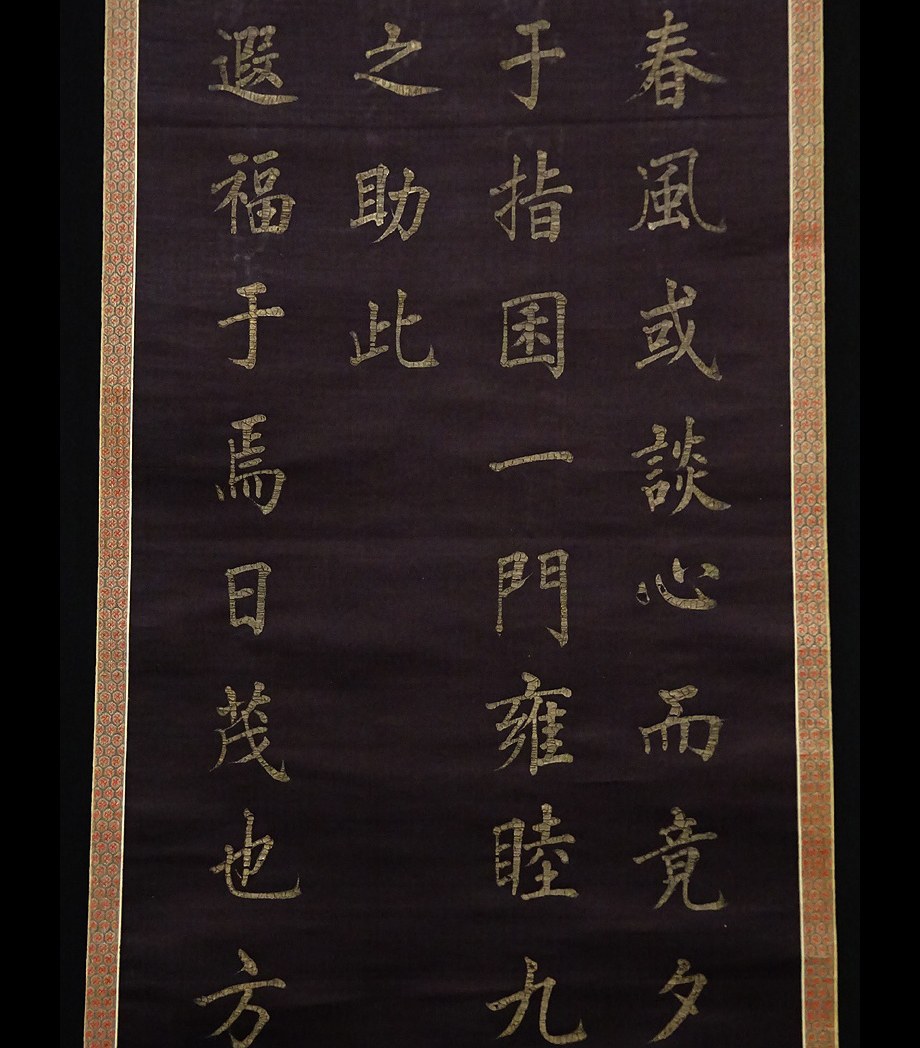 春風或談心而竟夕
于指囷一門雍睦九
之助此
遐福于焉日茂也方